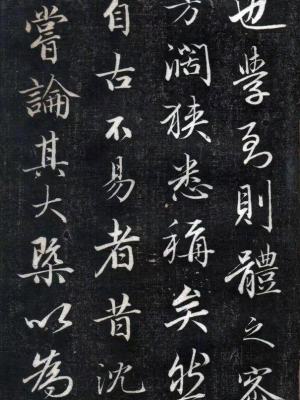 也學至則體之密
方濶狹悉稱矣然
自古不易者昔沈
嘗論其大槩以為